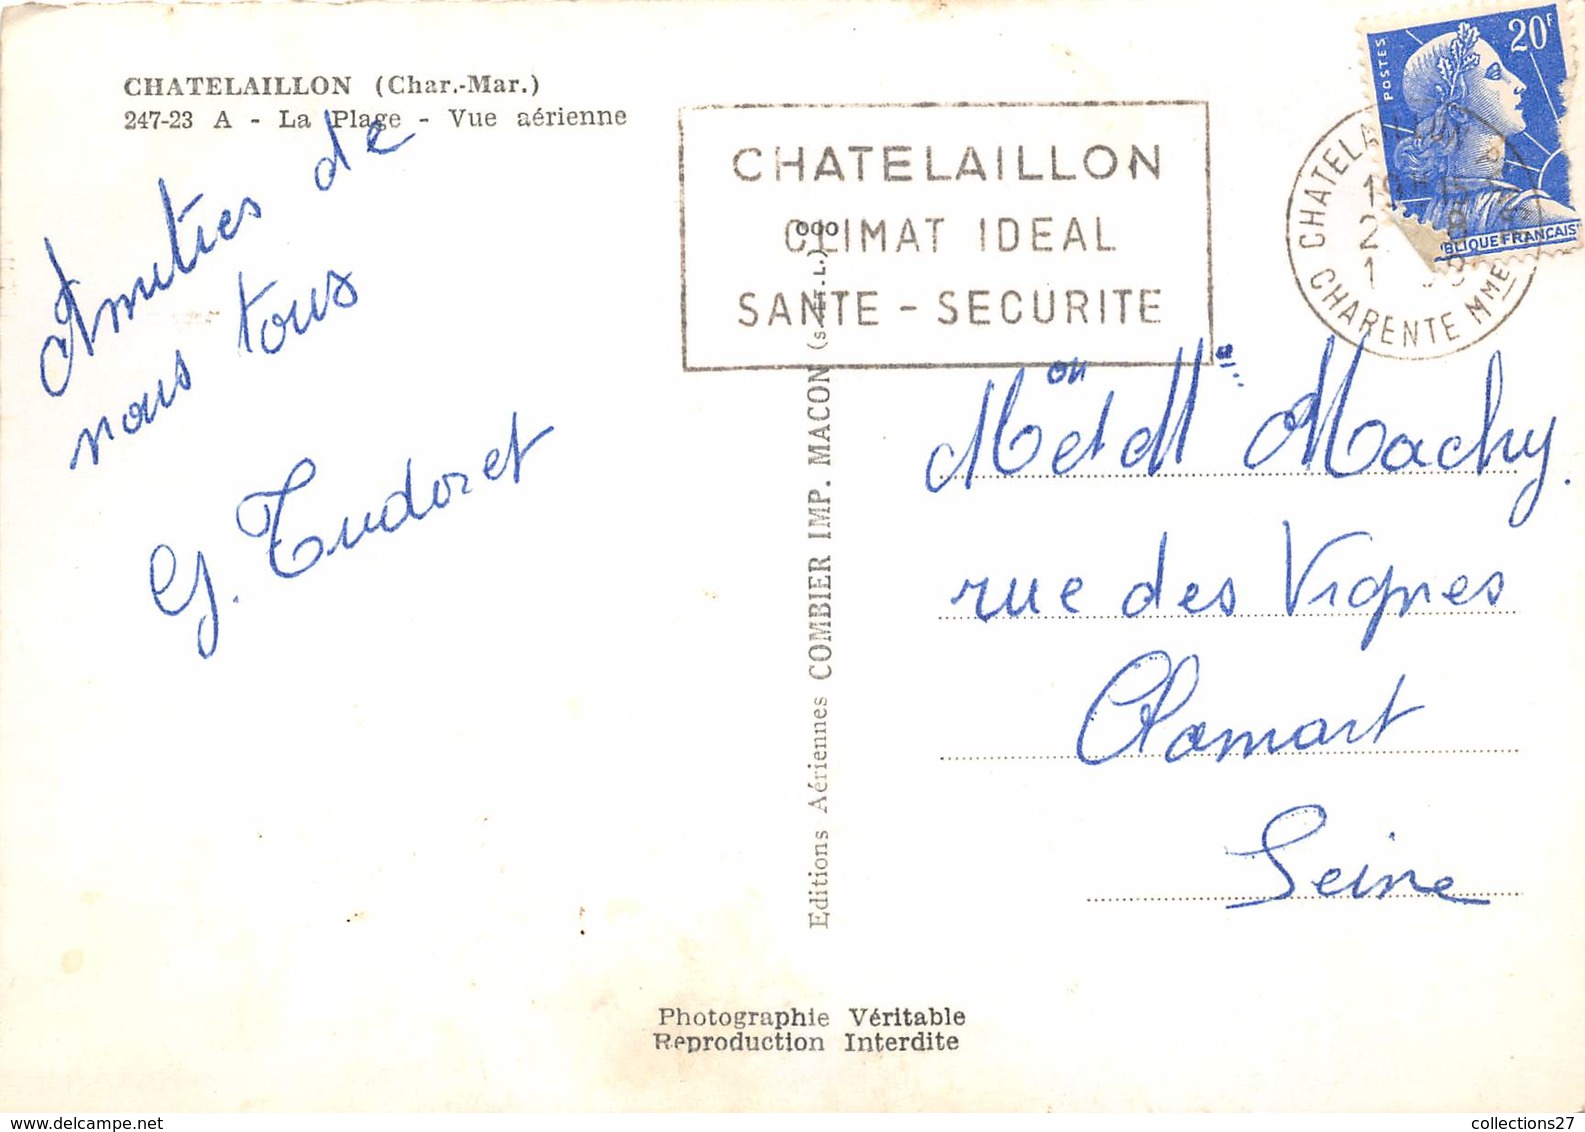 CHATELAILLON (Char.-Mar.)
247-23 A - La Plage - Vue aérienne
Amitiés de
nous tous
G. Tudoret
CHATELAILLON
CLIMAT IDEAL
SANTE - SECURITE
POSTES
20F
BLIQUE FRANÇAISE
CHATELAILLON
CHARENTE MME
Editions Aériennes COMBIER IMP. MACON
Mon et Me Machy.
rue des Vignes
Clamart
Seine
Photographie Véritable
Reproduction Interdite
collections27